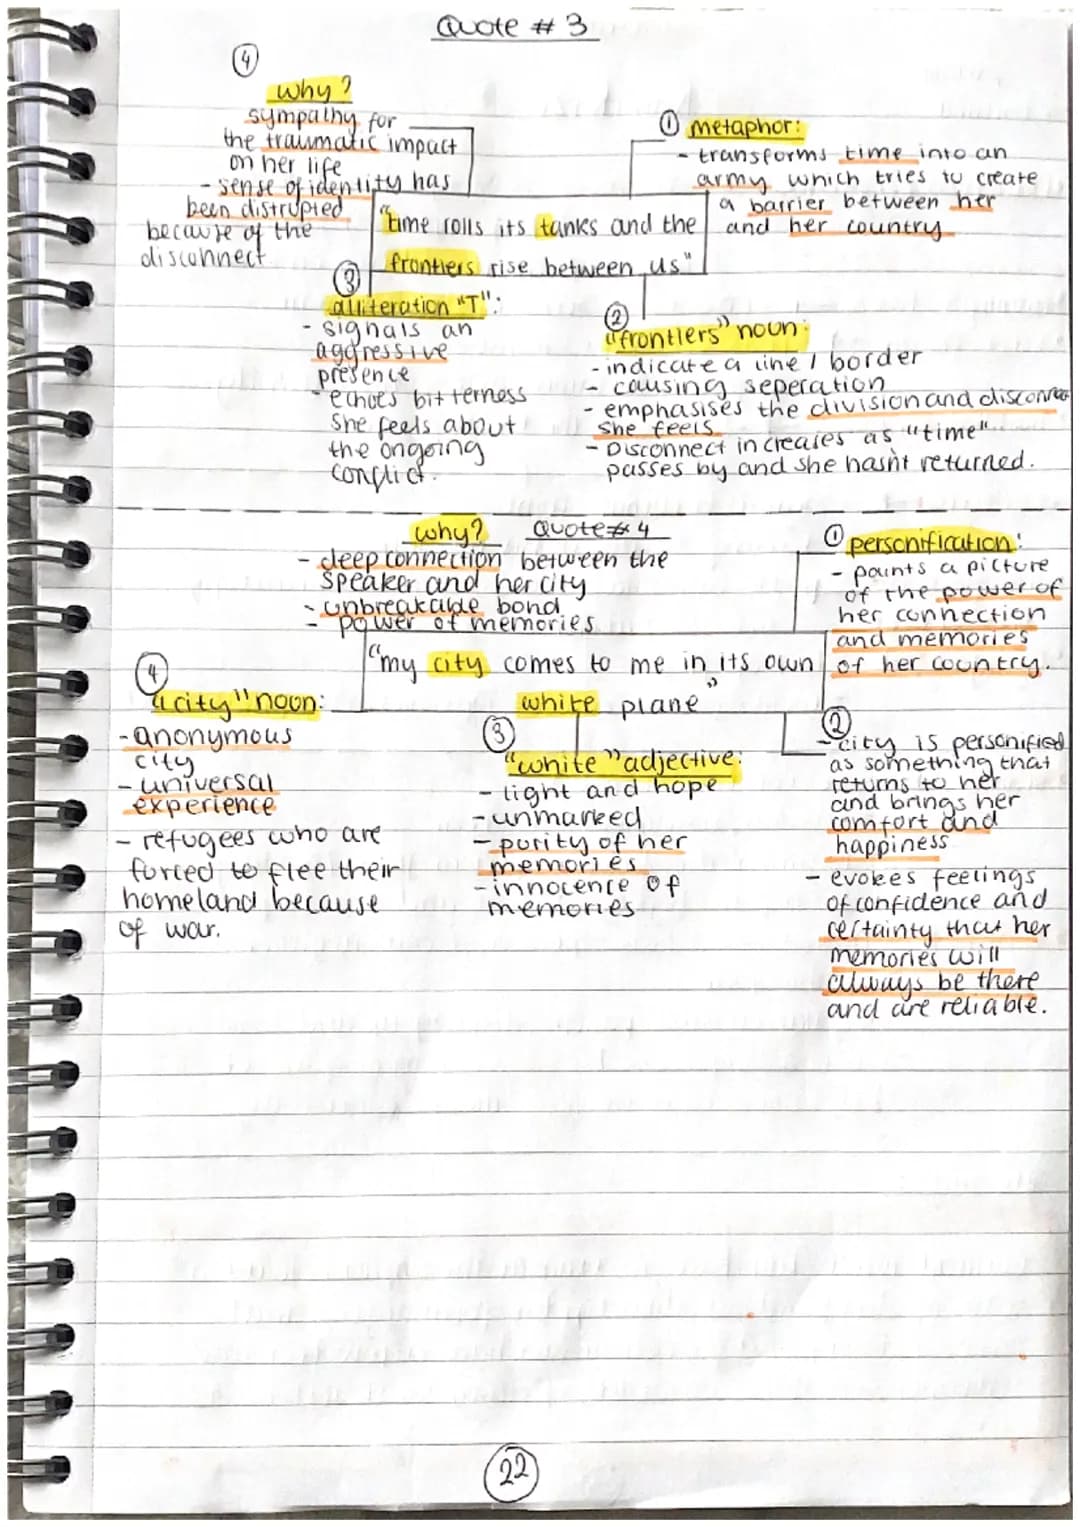 Quote # 3
④
why?
sympathy for
the traumatic impact
on her life
- sense of identity has
been distrupted
because of the
disconnect
① metaphor:
- transforms time into an
army which tries to create
a barrier between her
and her country
"time rolls its tanks and the
frontiers rise between us"
③
alliteration "T":
- signals an
aggressive
presence
- echoes bitterness
She feels about
the ongoing
conflict.
②
"frontiers" noun:
- indicate a line / border
- causing seperation
- emphasises the division and disconnec
She feels
- Disconnect increases as "time"
passes by and she hasn't returned.
why?
Quote # 4
- deep connection between the
speaker and her city
- unbreakable bond
- power of memories
① personification:
- paints a picture
of the power of
her connection
and memories
of her country.
"my city comes to me in its own
white plane"
④
"city" noun:
- anonymous
city
- universal
experience
- refugees who are
forced to flee their
homeland because
of war.
③
"white" adjective:
- light and hope
- unmarked
- purity of her
memories
- innocence of
memories
②
- city is personified
as something that
returns to her
and brings her
comfort and
happiness
- evokes feelings
of confidence and
certainty that her
memories will
always be there
and are reliable.
22